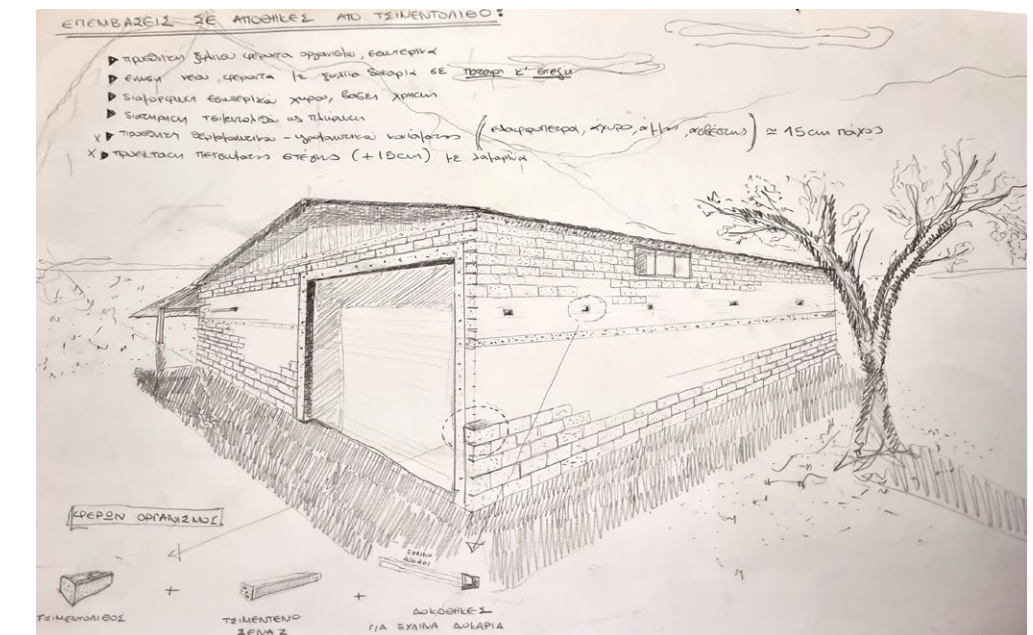 ΕΠΕΜΒΑΣΕΙΣ ΣΕ ΑΠΟΘΗΚΕΣ ΑΠΟ ΤΣΙΜΕΝΤΟΛΙΘΟ:
▶ προσθήκη ξύλινου φέροντα οργανισμού, εσωτερικά
▶ ένωση νέου φέροντα με ξύλινα δοκάρια σε πάτωμα κ' στέγη
▶ διαμόρφωση εσωτερικού χώρου, βάσει χρήσεων
▶ διατήρηση τσιμεντόλιθου ως πλήρωση
x ▶ προσθήκη θερμομονωτικού - υγρομονωτικού κονιάματος (ελαφρόπετρα, άχυρο, άμμος, ασβέστης) ≃ 15cm πάχος
x ▶ προέκταση πετσώματος στέγης (+15cm) με λαμαρίνα
ΦΕΡΩΝ ΟΡΓΑΝΙΣΜΟΣ
ΞΥΛΙΝΟ
ΔΟΚΑΡΙ
+
+
ΤΣΙΜΕΝΤΟΛΙΘΟΣ
ΤΣΙΜΕΝΤΕΝΟ
ΣΕΝΑΖ
ΔΟΚΟΘΗΚΕΣ
ΓΙΑ ΞΥΛΙΝΑ ΔΟΚΑΡΙΑ